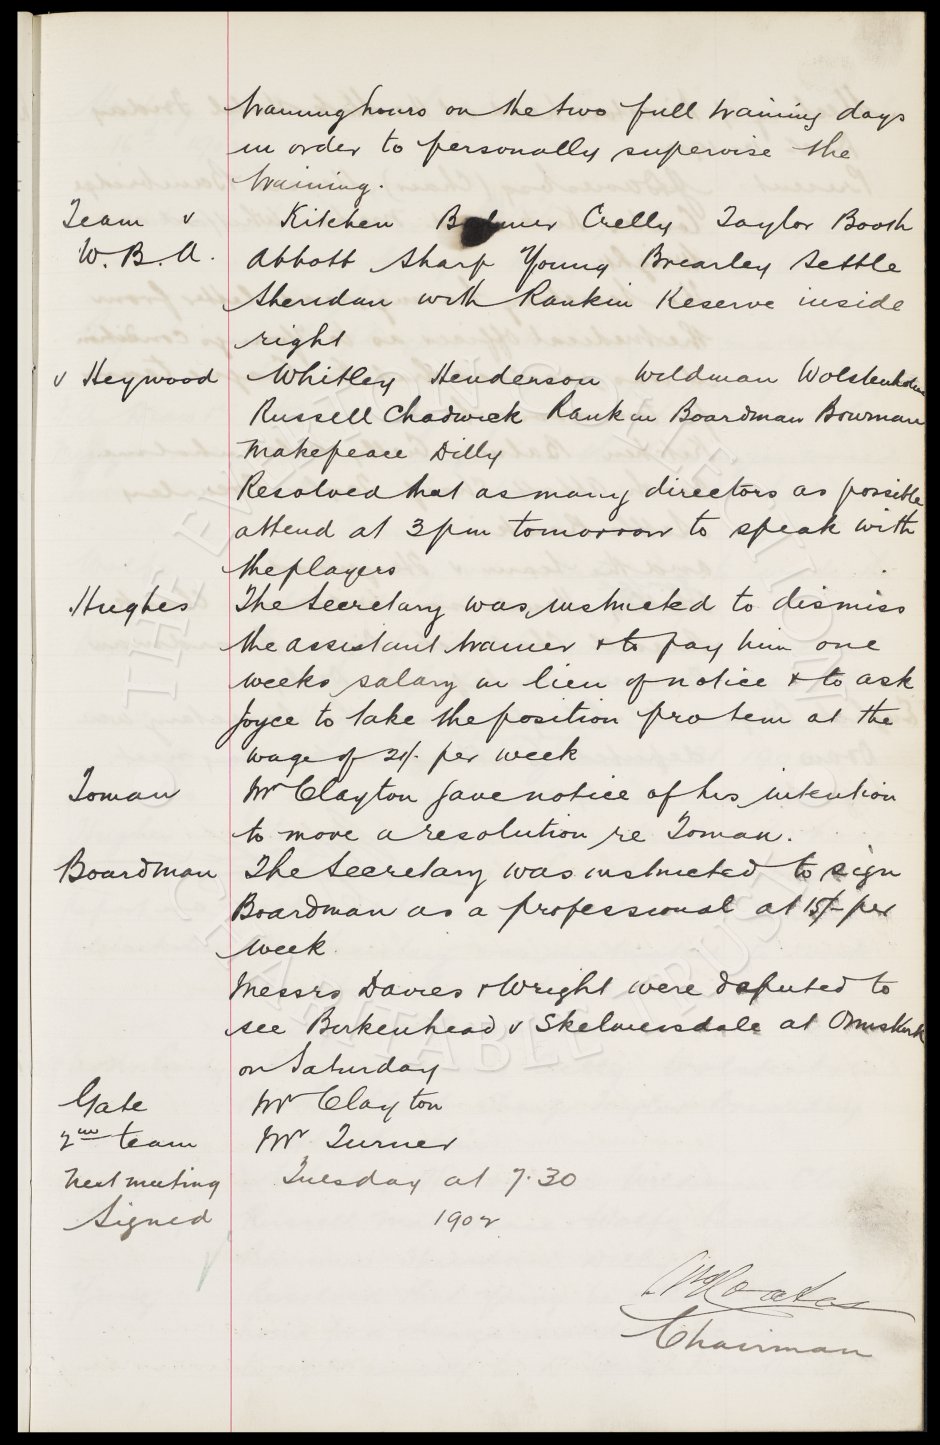 training hours on the two full training days
in order to personally supervise the
training.
Team v Kitchen Balmer Crelly Taylor Booth
W.B.A. Abbott Sharp Young Brearley Settle
Sheridan with Rankin Reserve inside
right
v Heywood Whitley Henderson Wildman Wolstenholme
Russell Chadwick Rankin Boardman Bowman
Makepeace Dilly
Resolved that as many directors as possible
attend at 3pm tomorrow to speak with
the players
Hughes The Secretary was instructed to dismiss
the assistant trainer & to pay him one
weeks salary in lieu of notice & to ask
Joyce to take the position pro tem at the
wage of per week
Toman Mr Clayton gave notice of his intention
to move a resolution re Toman.
Boardman The Secretary was instructed to sign
Boardman as a professional at 15/- per
week
Messrs Davies & Wright were deputed to
see Birkenhead v Skelmersdale at Ormskirk
on Saturday
Gate Mr Clayton
2nd team Mr Turner
Next meeting Tuesday at 7.30
Signed 1902
Chairman